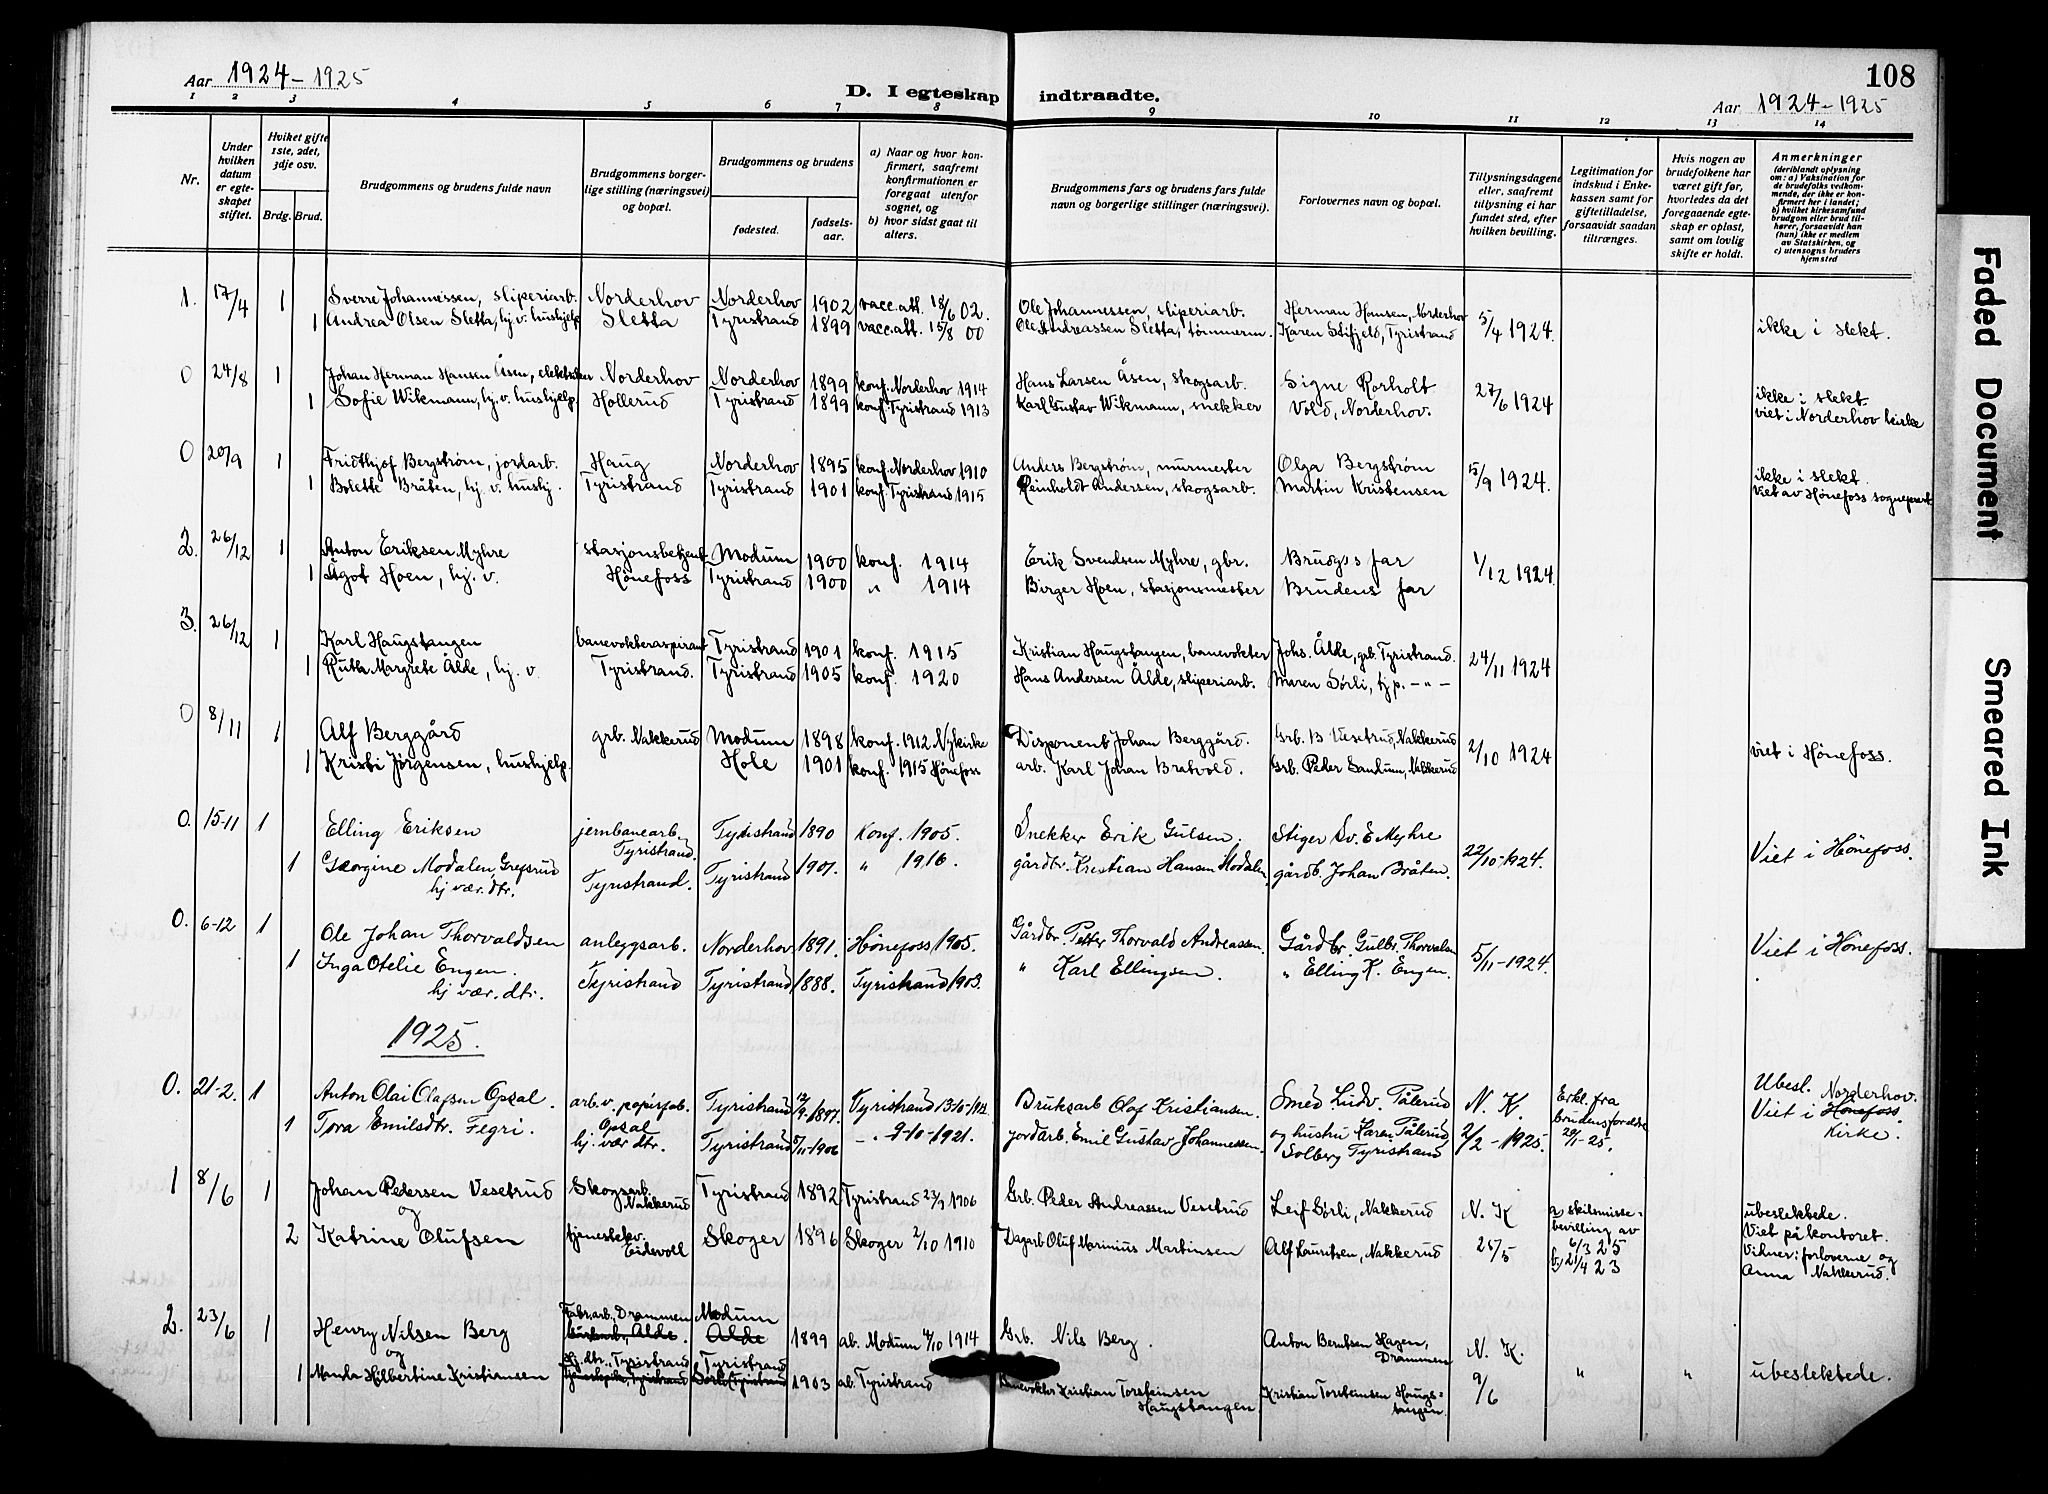 Aar 1924-1925
D. I egteskap indtraadte.
Aar 1924-1925
108
1 2 3 4 5 6 7 8 9 10 11 12 13 14
Nr.
Under hvilken datum er egteskapet stiftet.
Hvilket gifte 1ste, 2det, 3dje osv.
Brdg. Brud.
Brudgommens og brudens fulde navn
Brudgommens borgerlige stilling (næringsvei) og bopæl.
Brudgommens og brudens
fødested.
fødselsaar.
a) Naar og hvor konfirmert, saafremt konfirmationen er foregaat utenfor sognet, og
b) hvor sidst gaat til alters.
Brudgommens fars og brudens fars fulde navn og borgerlige stillinger (næringsvei).
Forlovernes navn og bopæl.
Tillysningsdagene eller, saafremt tillysning ei har fundet sted, efter hvilken bevilling.
Legitimation for indskud i Enkekassen samt for giftetilladelse, forsaavidt saadan tiltrænges.
Hvis nogen av brudefolkene har været gift før, hvorledes da det foregaaende egteskap er opløst, samt om lovlig skifte er holdt.
Anmerkninger
(deriblandt oplysning om: a) Vaksination for de brudefolks vedkommende, der ikke er konfirmert her i landet;
b) hvilket kirkesamfund brudgom eller brud tilhører, forsaavidt han (hun) ikke er medlem av Statskirken, og
c) utensogns bruders hjemsted
1. 17/4 1 Sverre Johannessen, sliperiarb. Norderhov Norderhov 1902 vacc.att. 18/6 02. Ole Johannessen, sliperiarb. Herman Hansen, Norderhov 5/4 1924.
1 Andrea Olsen Sletta, hj. v. hushjelp Sletta Tyristrand 1899 vacc.att. 15/8 00 Ole Andreassen Sletta, tømmerm. Karen Stifjeld, Tyristrand ikke i slekt.
0 24/8 1 Johan Herman Hansen Åsen, elektriker Norderhov Norderhov 1899 konf. Norderhov 1914 Hans Larsen Åsen, skogsarb. Signe Rorholt 27/6 1924 ikke i slekt.
1 Sofie Wikmann, hj. v. hushjelp. Hollerud Tyristrand 1899 konf. Tyristrand 1913 Karl Gustav Wikmann, snekker Vold, Norderhov. viet i Norderhov kirke
0 20/9 1 Fridthjof Bergstrøm, jordarb. Haug Norderhov 1895 konf. Norderhov 1910 Anders Bergstrøm, murmester Olga Bergstrøm 5/9 1924. ikke i slekt.
1 Bolette Bråten, hj. v. hushj. Tyristrand Tyristrand 1901 konf. Tyristrand 1915 Reinholdt Andersen, skogsarb. Martin Kristensen viet av Hønefoss sogneprest
2. 26/12 1 Anton Eriksen Myhre stasjonsbetjent Modum 1900 konf. 1914 Erik Svendsen Myhre, gbr. Brudgs far 1/12 1924.
1 Ågot Hoen, hj. v. Hønefoss Tyristrand 1900 " 1914 Birger Hoen, stasjonsmester Brudens far
3. 26/12 1 Karl Haugstangen banevokteraspirant Tyristrand 1901 konf. 1915 Kristian Haugstangen, banevokter Johs. Ålde, grb. Tyristrand. 24/11 1924
1 Ruth Margrete Ålde, hj. v. Tyristrand. Tyristrand 1905 konf. 1920 Hans Andersen Ålde, sliperiarb. Maren Sørli, tj.p. -"-
0 8/11 1 Alf Berggård grb. Nakkerud Modum 1898 konf. 1912 Nykirke Disponent Johan Berggård. Grb. B Vesetrud, Nakkerud 2/10 1924
1 Kristi Jørgensen, hushjelp. Hole 1901 konf. 1915 Hønefoss arb. Karl Johan Bratvold. Grb. Peder Sandum, Nakkerud viet i Hønefoss.
0. 15-11 1 Elling Eriksen jernbanearb. Tyristrand. Tyristrand 1890 Konf. 1905. Snekker Erik Gulsen. Stiger Sv. E Myhre 22/10-1924.
1 Georgine Modalen Grefsrud hj vær. dtr. Tyristrand. Tyristrand 1901. " 1916. gårdbr. Kristian Hansen Modalen. gårdb. Johan Bråten. Viet i Hønefoss.
0. 6-12 1 Ole Johan Thorvaldsen anleggsarb. Norderhov 1891. Hønefoss 1905. Gårdbr. Petter Thorvald Andreassen. Gårdbr. Gulbr. Thorvalds 5/11-1924. Viet i Hønefoss.
1 Inga Otelie Engen. hj vær. dtr. Tyristrand Tyristrand 1888. Tyristrand 1903. " Karl Ellingsen. " Elling K. Engen.
1925.
0. 21-2. 1 Anton Olai Olafsen Opsal. arb. v. papirfab. Opsal Tyristrand 12/9-1897. Tyristrand 13-10-1912 Bruksarb Olaf Kristiansen. Smed Ludv. Pålerud N. K. Erkl. fra brudens foreldre 29/1-25. Ubesl.
1 Tora Emilsdtr. Fegri. hj. vær dtr. Tyristrand 5/11-1906 -"- 9-10-1921. jordarb. Emil Gustav Johannessen. og hustru Karen Pålerud, Solberg Tyristrand 2/2-1925. Viet i Hønefoss Norderhov. Kirke.
1 8/6 1 Johan Pedersen Vesetrud og Skogsarb. Nakkerud Tyristrand 1892 Tyristrand 23/9 1906 Grb. Peder Andreassen Vesetrud Leif Sørli, Nakkerud N. K a) skilsmissebevilling av 6/3 25 b) 21/4 23 ubeslektede.
2 Katrine Olufsen tjenestekv. Eidsvoll Skoger 1896 Skoger 2/10 1910 Dagarb Oluf Marinius Martinsen Alf Lauritsen, Nakkerud 25/5 Viet på kontoret. Vitner: forloverne og Anna Nakkerud.
2. 23/6 1 Henry Nilsen Berg og Fabr.arb., Drammen Modum Ålde 1899 ab. Modum 4/10 1914 Grb. Nils Berg. Anton Berntsen Hagen, Drammen N. K.
1 Manda Hilbertine Kristiansen Hj. dtr., Tyristrand Tyristrand 1903 ab. Tyristrand Banevokter Kristian Torsteinsen Haugstangen Kristian Torsteinsen Haugstangen 9/6 " " ubeslektede.
Faded Document
Smeared Ink